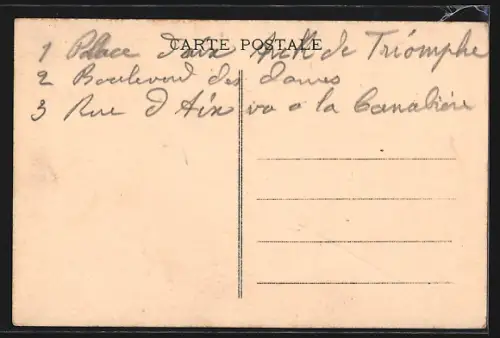 CARTE POSTALE
1 Place d'aix Ark de Triomphe
2 Boulevord des dames
3 Rue d Aix va a la Canabière